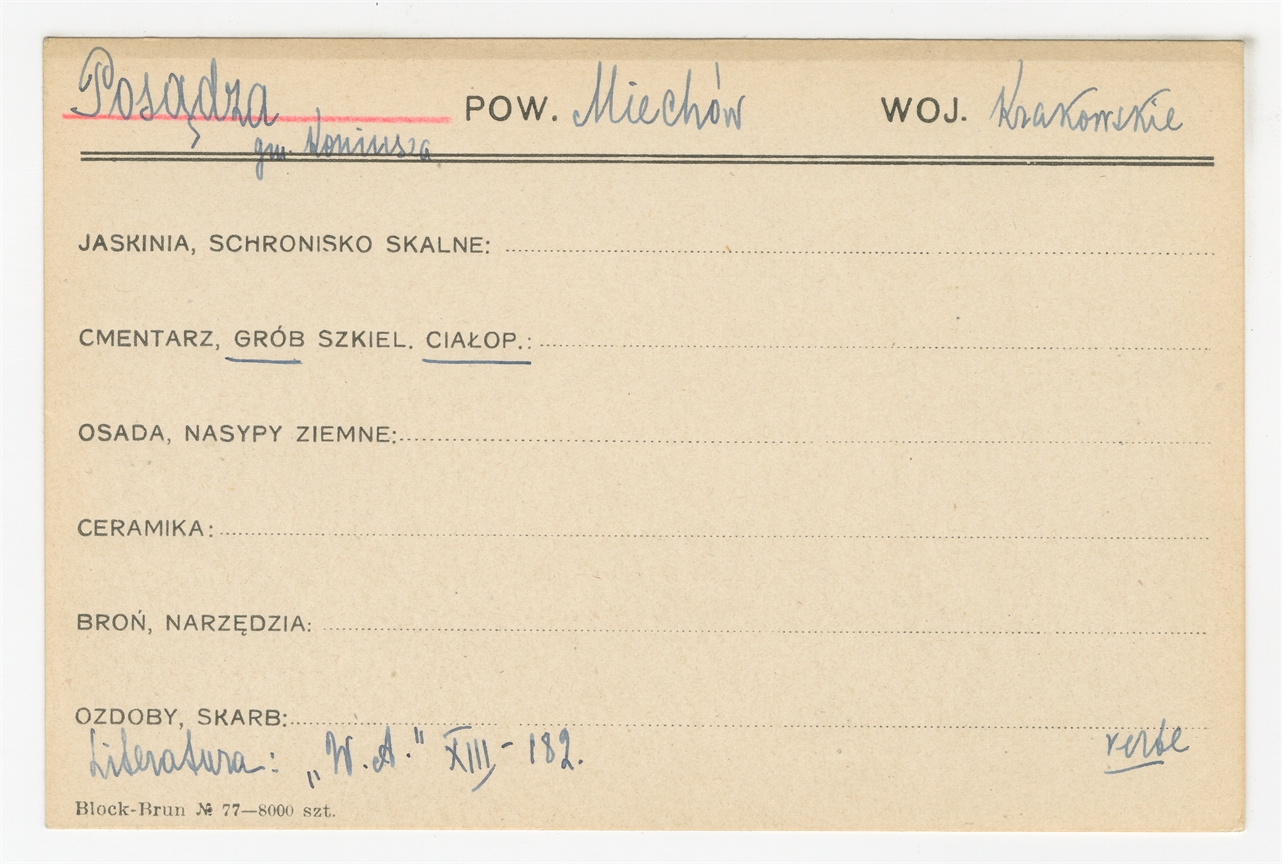 Posądza POW. Miechów WOJ. Krakowskie
gm. Koniusza
JASKINIA, SCHRONISKO SKALNE:
CMENTARZ, GRÓB SZKIEL. CIAŁOP.:
OSADA, NASYPY ZIEMNE:
CERAMIKA:
BROŃ, NARZĘDZIA:
OZDOBY, SKARB:
Literatura: „W.A." XIII - 182. verte
Block-Brun № 77—8000 szt.